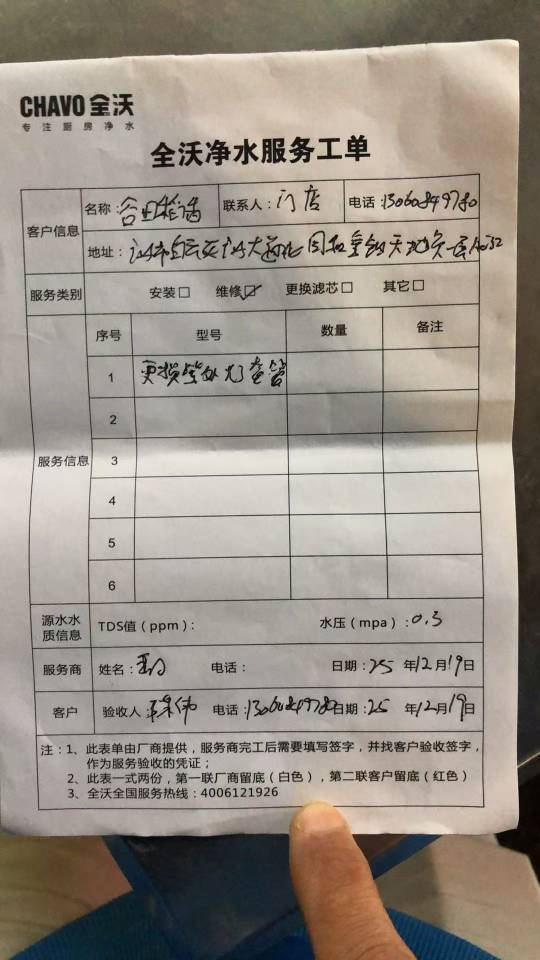 CHAVO 全沃
专注厨房净水
全沃净水服务工单
客户信息 名称：谷田稻香 联系人：门店 电话：13060849780
地址：
服务类别 安装□ 维修☑ 更换滤芯□ 其它□
服务信息 序号 型号 数量 备注
1 更换紫外灯套管
2
3
4
5
6
源水水质信息 TDS值（ppm）： 水压（mpa）：0.3
服务商 姓名： 电话： 日期：25年12月19日
客户 验收人 电话：13060849780 日期：25年12月19日
注：1、此表单由厂商提供，服务商完工后需要填写签字，并找客户验收签字，
作为服务验收的凭证；
2、此表一式两份，第一联厂商留底（白色），第二联客户留底（红色）
3、全沃全国服务热线：4006121926